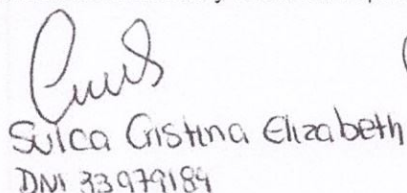 Sulca Cristina Elizabeth
DNI 33979189